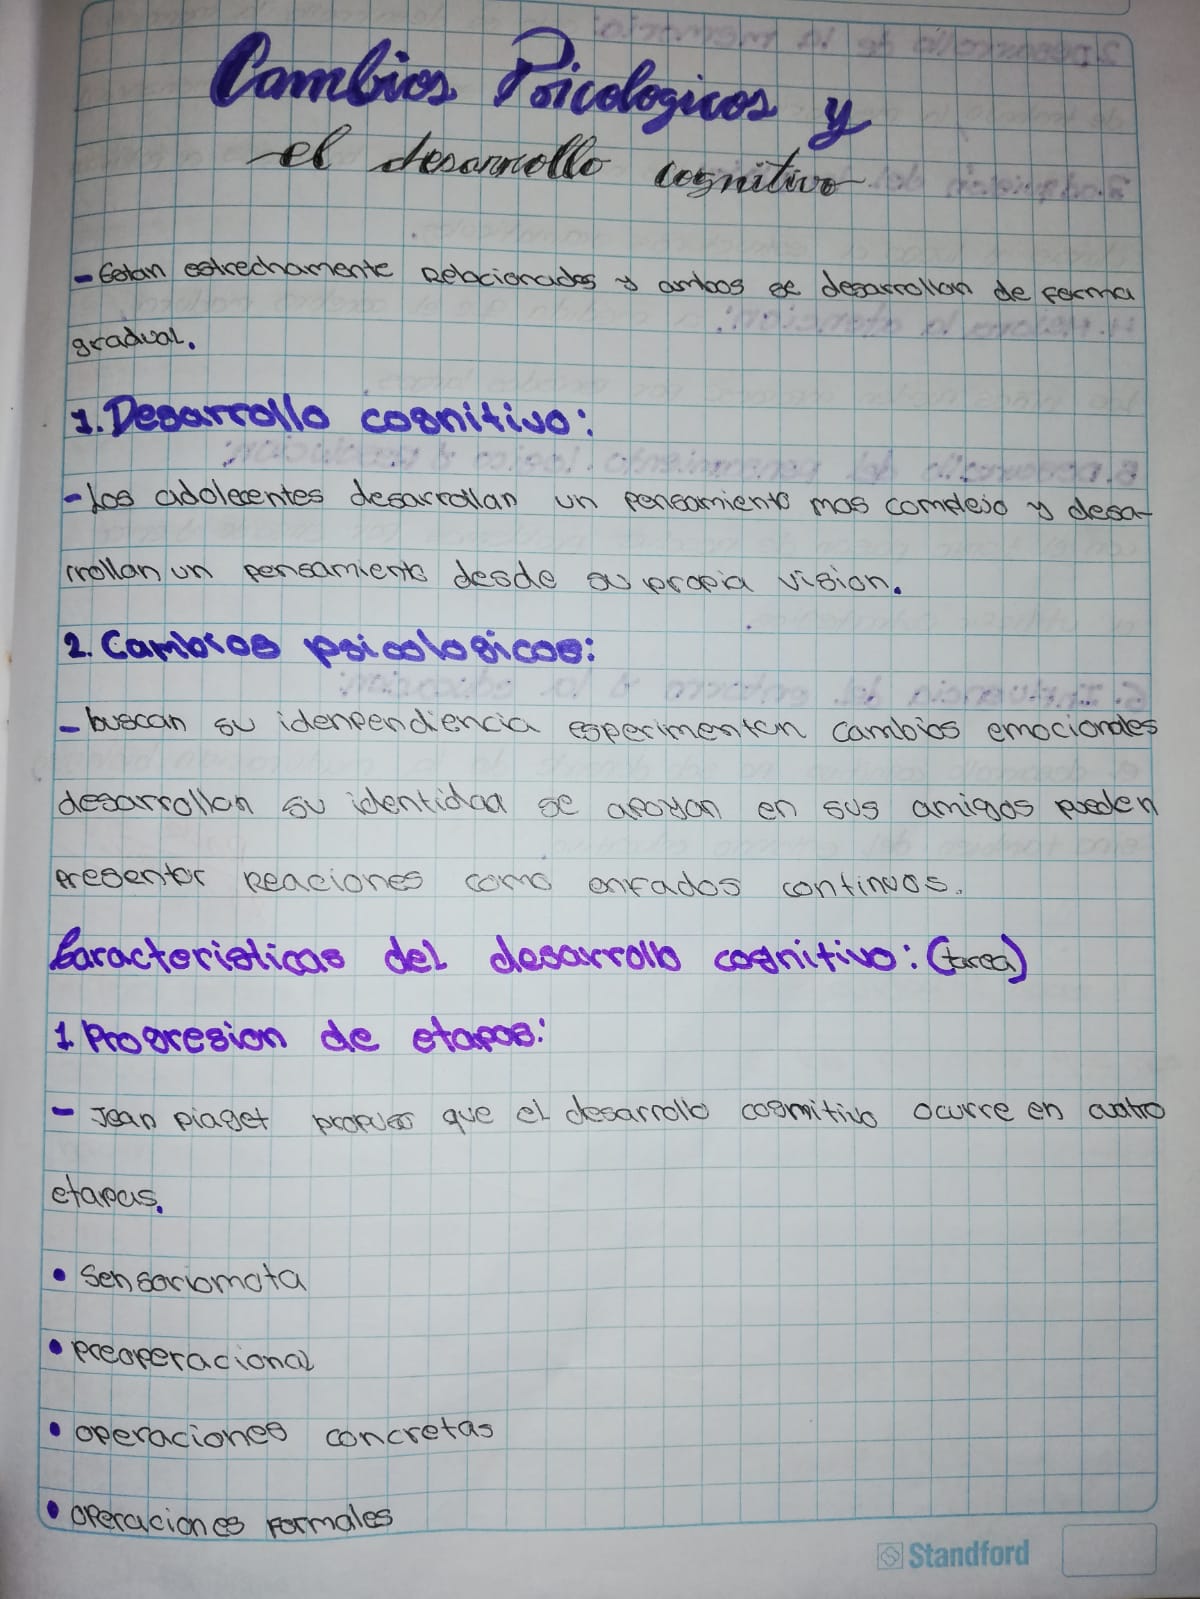 Cambios Psicologicos y
el desarrollo cognitivo
- Estan estrechamente Relacionados y ambos se desarrollan de forma
gradual.
1. Desarrollo cognitivo:
- Los adolecentes desarrollan un pensamiento mas complejo y desa-
rrollan un pensamiento desde su propia vision.
2. Cambios psicologicos:
- buscan su idenpendiencia esperimentan cambios emocionales
desarrollan su identidad se apoyan en sus amigos pueden
presentar Reaciones como enfados continuos.
Caracteristicas del desarrollo cognitivo: (tarea)
1 Progresion de etapas:
- Jean piaget propuso que el desarrollo cognitivo ocurre en cuatro
etapas.
• Sensoriomota
• preoperacional
• operaciones concretas
• operaciones formales
Standford